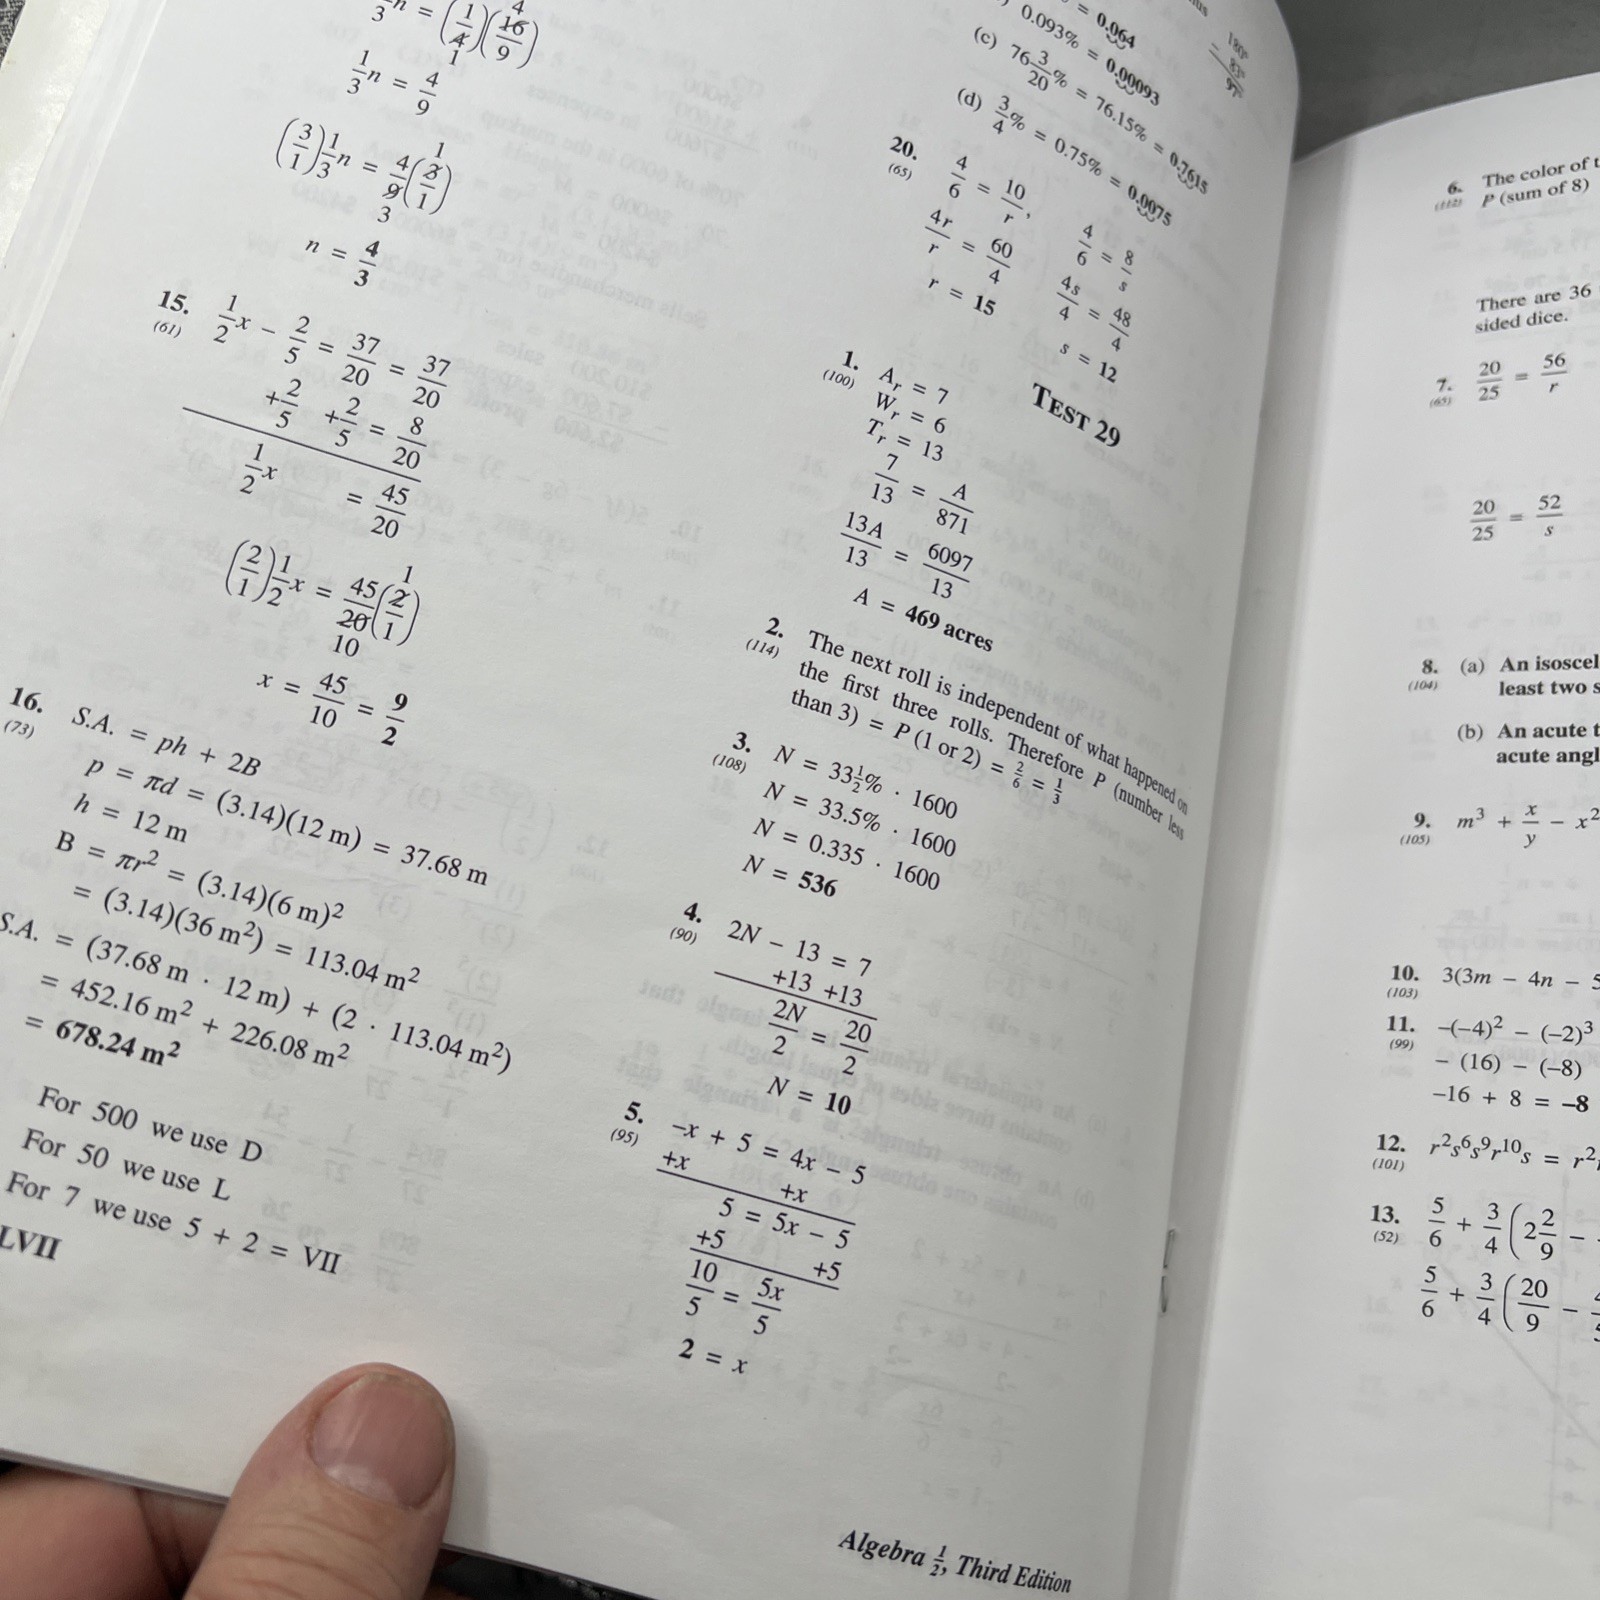 1/3 n = (1/4)(16/9) 4 1
1/3 n = 4/9
(3/1) 1/3 n = 4/9 (3/1) 1 3
n = 4/3
15. 1/2 x − 2/5 = 37/20 = 37/20
(61)
+2/5 +2/5 = 8/20
1/2 x = 45/20
(2/1) 1/2 x = 45/20 (2/1) 1 10
x = 45/10 = 9/2
16. S.A. = ph + 2B
(73)
p = πd = (3.14)(12 m) = 37.68 m
h = 12 m
B = πr² = (3.14)(6 m)²
= (3.14)(36 m²) = 113.04 m²
S.A. = (37.68 m · 12 m) + (2 · 113.04 m²)
= 452.16 m² + 226.08 m²
= 678.24 m²
For 500 we use D
For 50 we use L
For 7 we use 5 + 2 = VII
LVII
= 0.064
0.093% = 0.00093
(c) 76 3/20 % = 76.15% = 0.7615
(d) 3/4 % = 0.75% = 0.0075
180°
− 83°
97°
20. 4/6 = 10/r, 4/6 = 8/s
(65)
4r/r = 60/4 4s/4 = 48/4
r = 15 s = 12
TEST 29
1. Ar = 7
(100)
Wr = 6
Tr = 13
7/13 = A/871
13A/13 = 6097/13
A = 469 acres
2. The next roll is independent of what happened on
(114)
the first three rolls. Therefore P (number less
than 3) = P (1 or 2) = 2/6 = 1/3
3. N = 33½% · 1600
(108)
N = 33.5% · 1600
N = 0.335 · 1600
N = 536
4. 2N − 13 = 7
(90)
+13 +13
2N/2 = 20/2
N = 10
5. −x + 5 = 4x − 5
(95)
+x +x
5 = 5x − 5
+5 +5
10/5 = 5x/5
2 = x
Algebra ½, Third Edition
6. The color of t
(112)
P (sum of 8)
There are 36
sided dice.
7. 20/25 = 56/r
(65)
20/25 = 52/s
8. (a) An isoscel
(104)
least two s
(b) An acute t
acute angl
9. m³ + x/y − x²
(105)
10. 3(3m − 4n − 5
(103)
11. −(−4)² − (−2)³
(99)
− (16) − (−8)
−16 + 8 = −8
12. r²s⁶s⁹r¹⁰s = r²
(101)
13. 5/6 + 3/4 (2 2/9 −
(52)
5/6 + 3/4 (20/9 −